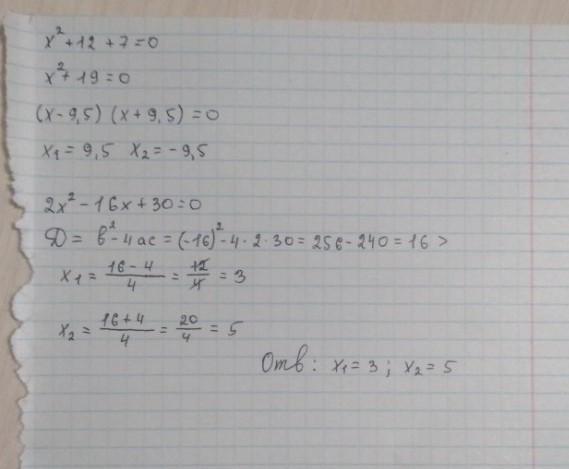 x²+12+7=0
x²+19=0
(x-9,5) (x+9,5)=0
x₁=9,5 x₂=-9,5
2x²-16x+30=0
D=b²-4ac=(-16)²-4·2·30=256-240=16>
x₁=(16-4)/4=12/4=3
x₂=(16+4)/4=20/4=5
Отв: x₁=3; x₂=5